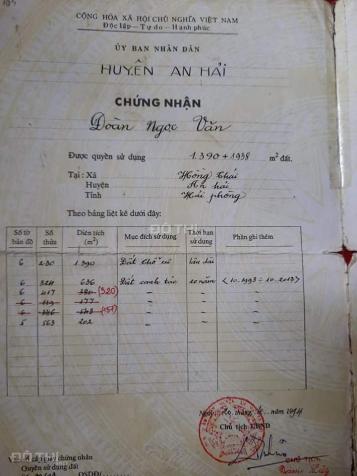 CỘNG HÒA XÃ HỘI CHỦ NGHĨA VIỆT NAM
Độc lập - Tự do - Hạnh phúc
ỦY BAN NHÂN DÂN
HUYỆN AN HẢI
CHỨNG NHẬN
Đoàn Ngọc Văn
Được quyền sử dụng 1.390 + 1938 m² đất.
Tại: Xã Hồng Thái
Huyện An hải
Tỉnh Hải phòng
Theo bảng liệt kê dưới đây:
Số tờ bản đồ Số thửa Diện tích (m²) Mục đích sử dụng Thời hạn sử dụng Phần ghi thêm
6 230 1.390 Đất ở lâu dài
6 324 636 Đất canh tác 20 năm (10.1993 - 10.2013)
6 417 (320)
6 177
6 (151)
5 563 202
Ngày tháng năm 1994
Chủ tịch UBND
CHỦ TỊCH
chứng nhận
Quyền sử dụng đất
QSDĐ/